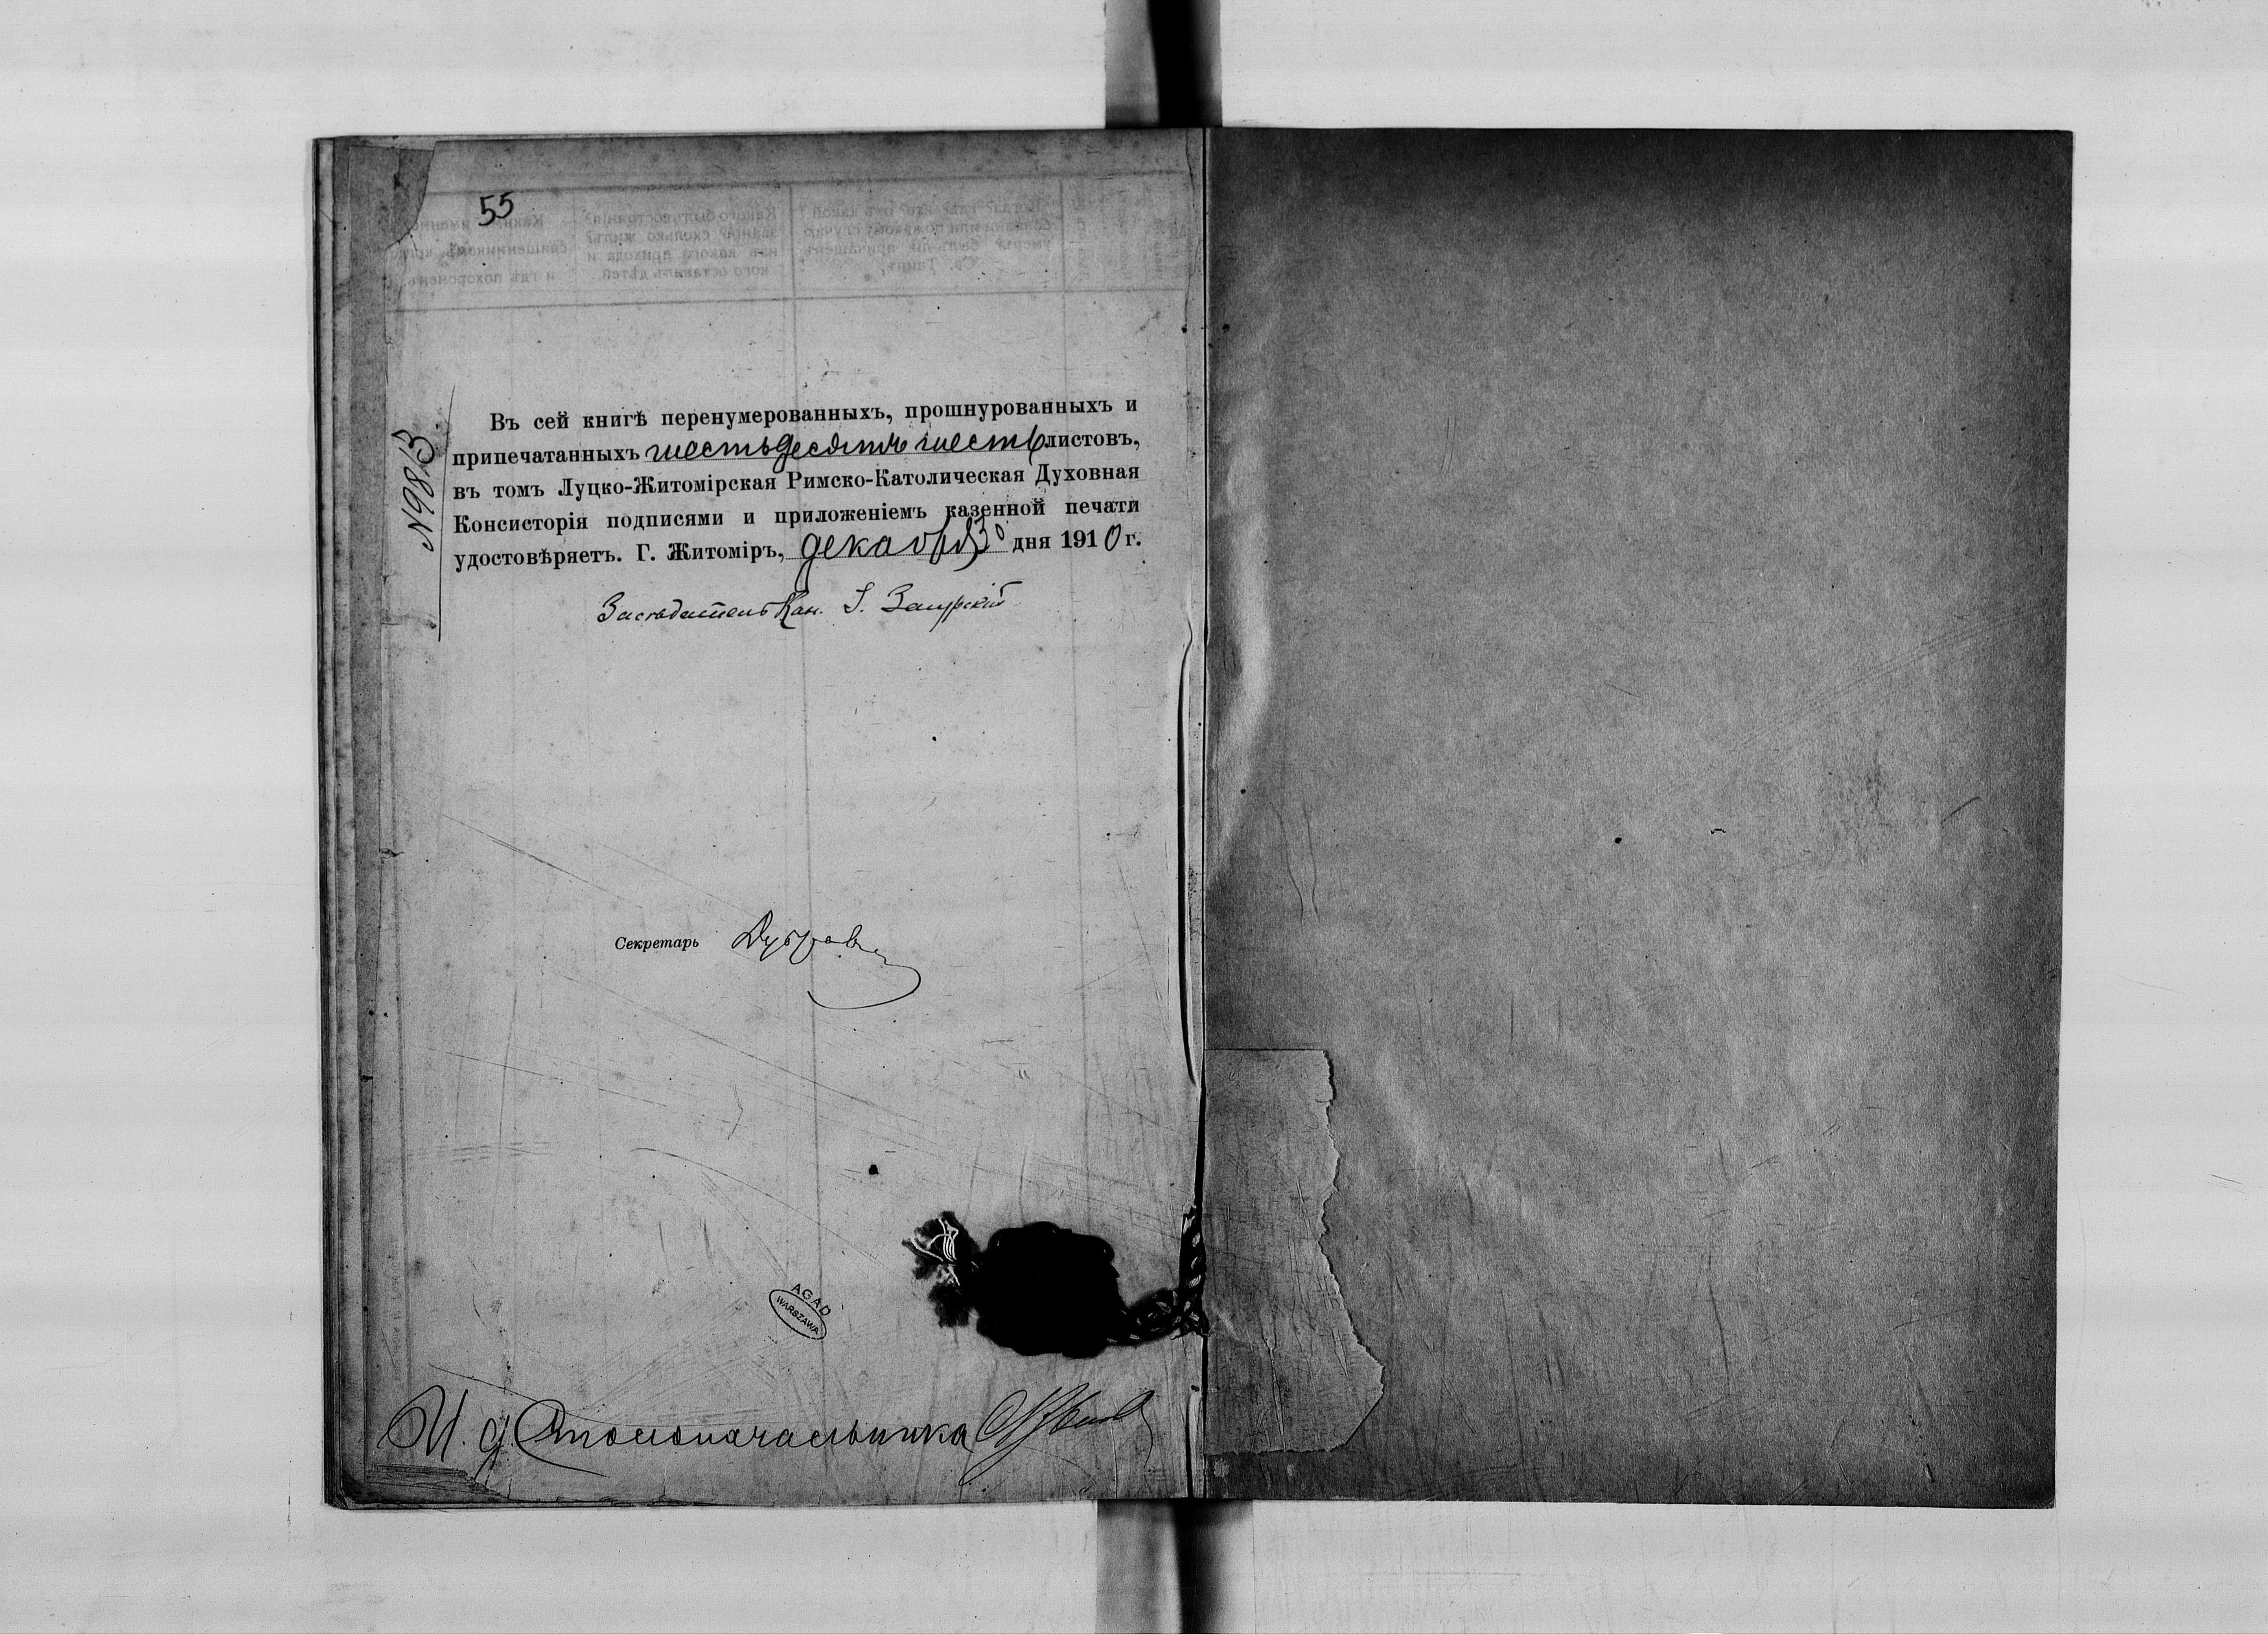 55
Въ сей книгѣ перенумерованныхъ, прошнурованныхъ и
припечатанныхъ шестьдесятъ шесть листовъ,
въ томъ Луцко-Житомірская Римско-Католическая Духовная
Консисторія подписями и приложеніемъ казенной печати
удостовѣряетъ. Г. Житоміръ, декабря 30 дня 1910 г.
№ 9813
Засѣдатель Кан. I.
Секретарь
AGAD
WARSZAWA
И. д. Столоначальника